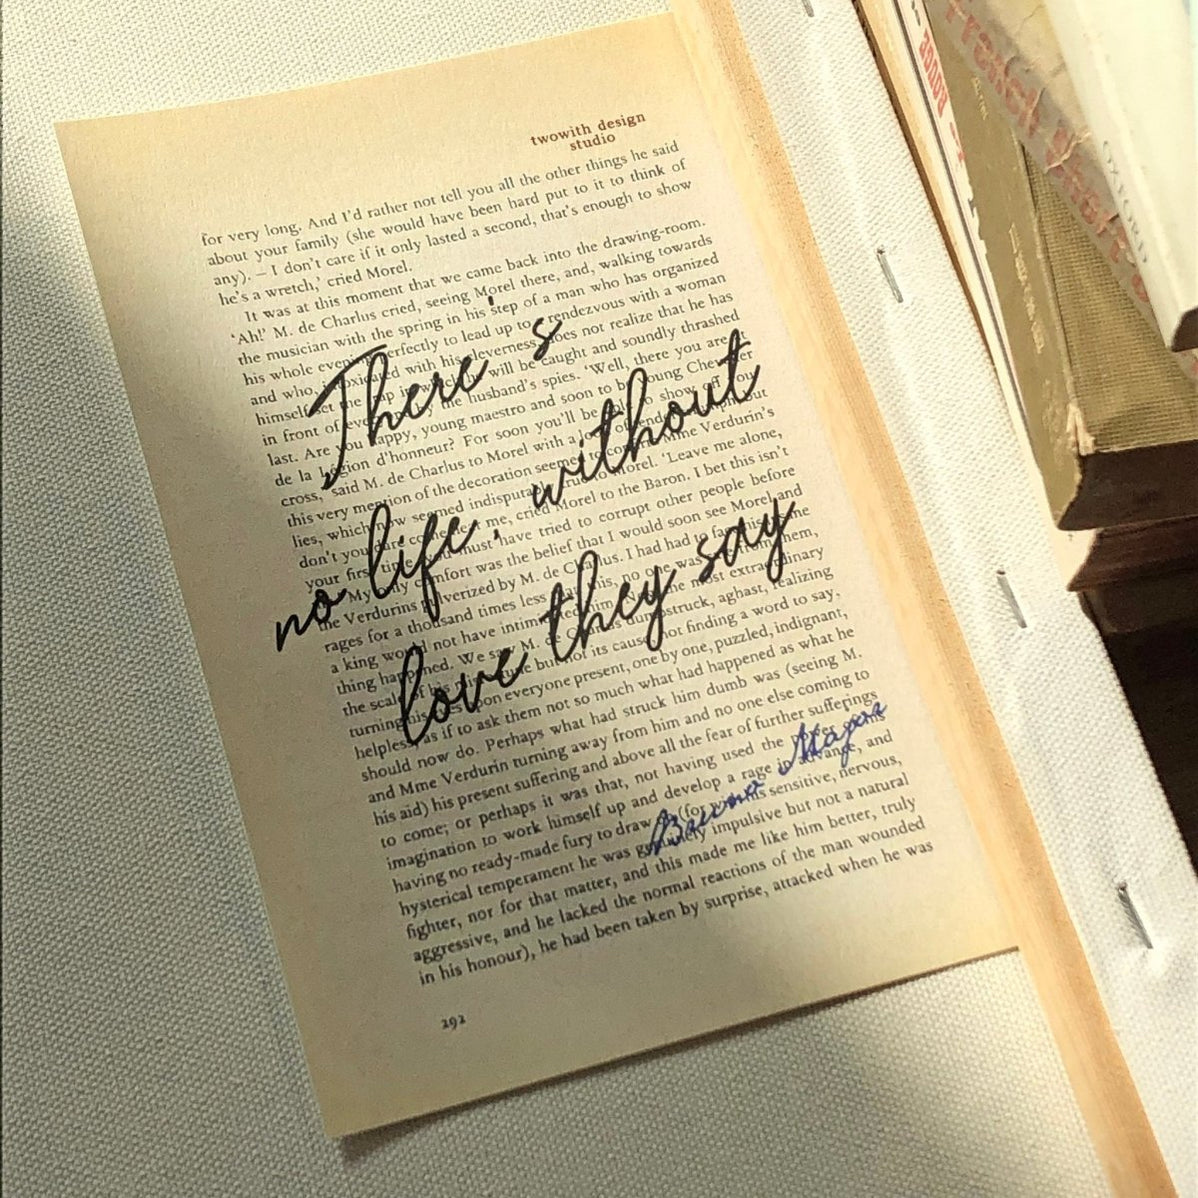 twowith design
studio
for very long. And I'd rather not tell you all the other things he said
about your family (she would have been hard put to it to think of
any). – I don't care if it only lasted a second, that's enough to show
he's a wretch,' cried Morel.
It was at this moment that we came back into the drawing-room.
'Ah!' M. de Charlus cried, seeing Morel there, and, walking towards
the musician with the spring in his step of a man who has organized
his whole evening perfectly to lead up to a rendezvous with a woman
and who, intoxicated with his cleverness, does not realize that he has
himself set the trap in which he will be caught and soundly thrashed
in front of everyone by the husband's spies. 'Well, there you are at
last. Are you happy, young maestro and soon to be young Chevalier
de la légion d'honneur? For soon you'll be able to show off your
cross,' said M. de Charlus to Morel with a
this very mention of the decoration seemed to Mme Verdurin's
lies, which now seemed indisputably true to Morel. 'Leave me alone,
don't you dare come near me, cried Morel to the Baron. I bet this isn't
your first time, must have tried to corrupt other people before
My only comfort was the belief that I would soon see Morel and
the Verdurins pulverized by M. de Charlus. I had had to face his
rages for a thousand times less than this, no one was from them,
a king would not have intimidated him. the most extraordinary
thing happened. We saw M. de Charlus dumbstruck, aghast, realizing
the scale of his but not its cause, not finding a word to say,
turning his eyes upon everyone present, one by one, puzzled, indignant,
helpless, as if to ask them not so much what had happened as what he
should now do. Perhaps what had struck him dumb was (seeing M.
and Mme Verdurin turning away from him and no one else coming to
his aid) his present suffering and above all the fear of further sufferings
to come; or perhaps it was that, not having used the
imagination to work himself up and develop a rage in advance, and
having no ready-made fury to draw (for his sensitive, nervous,
hysterical temperament he was genuinely impulsive but not a natural
fighter, nor for that matter, and this made me like him better, truly
aggressive, and he lacked the normal reactions of the man wounded
in his honour), he had been taken by surprise, attacked when he was
292
There's
no life, without
love they say
OXFORD
French